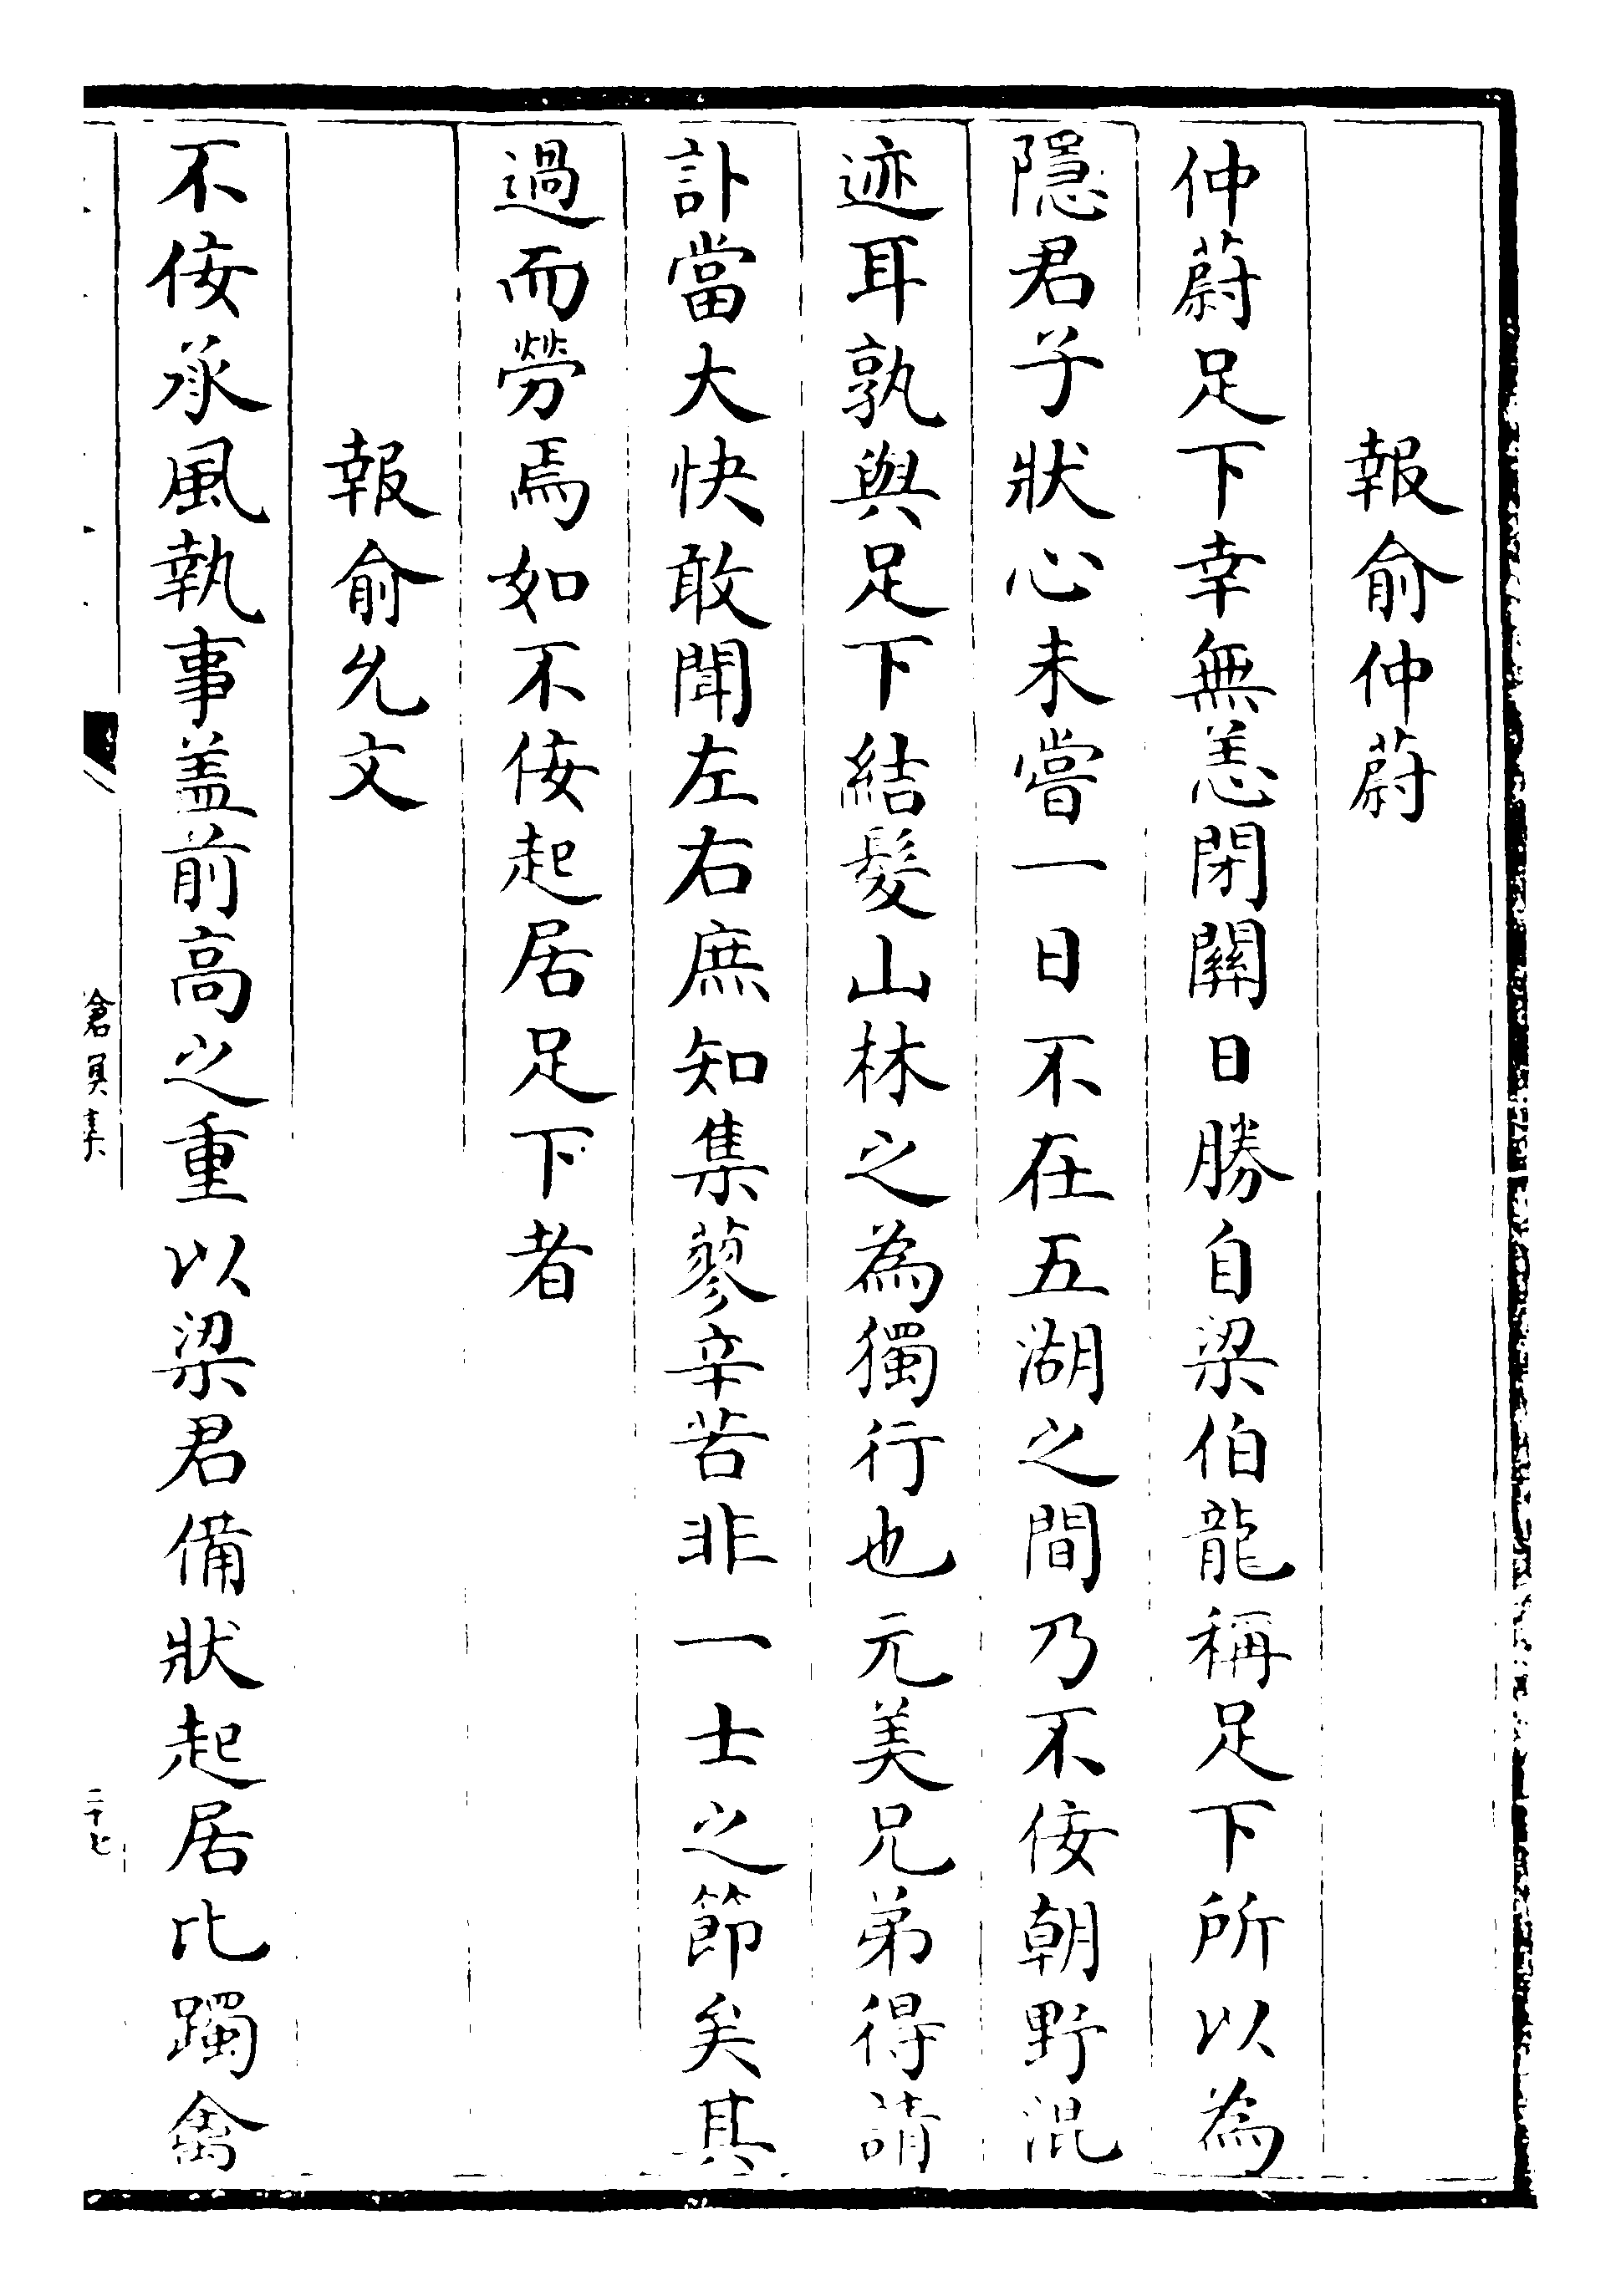 報俞仲蔚
仲蔚足下幸無恙閉關日勝自梁伯龍稱足下所以為
隱君子狀心未嘗一日不在五湖之間乃不佞朝野混
迹耳孰與足下結髮山林之為獨行也元美兄弟得請
訃當大快敢聞左右庶知集蓼辛苦非一士之節矣其
過而勞焉如不佞起居足下者
報俞允文
不佞承風執事盖前高之重以梁君備狀起居比躅禽
滄溟集
二十七